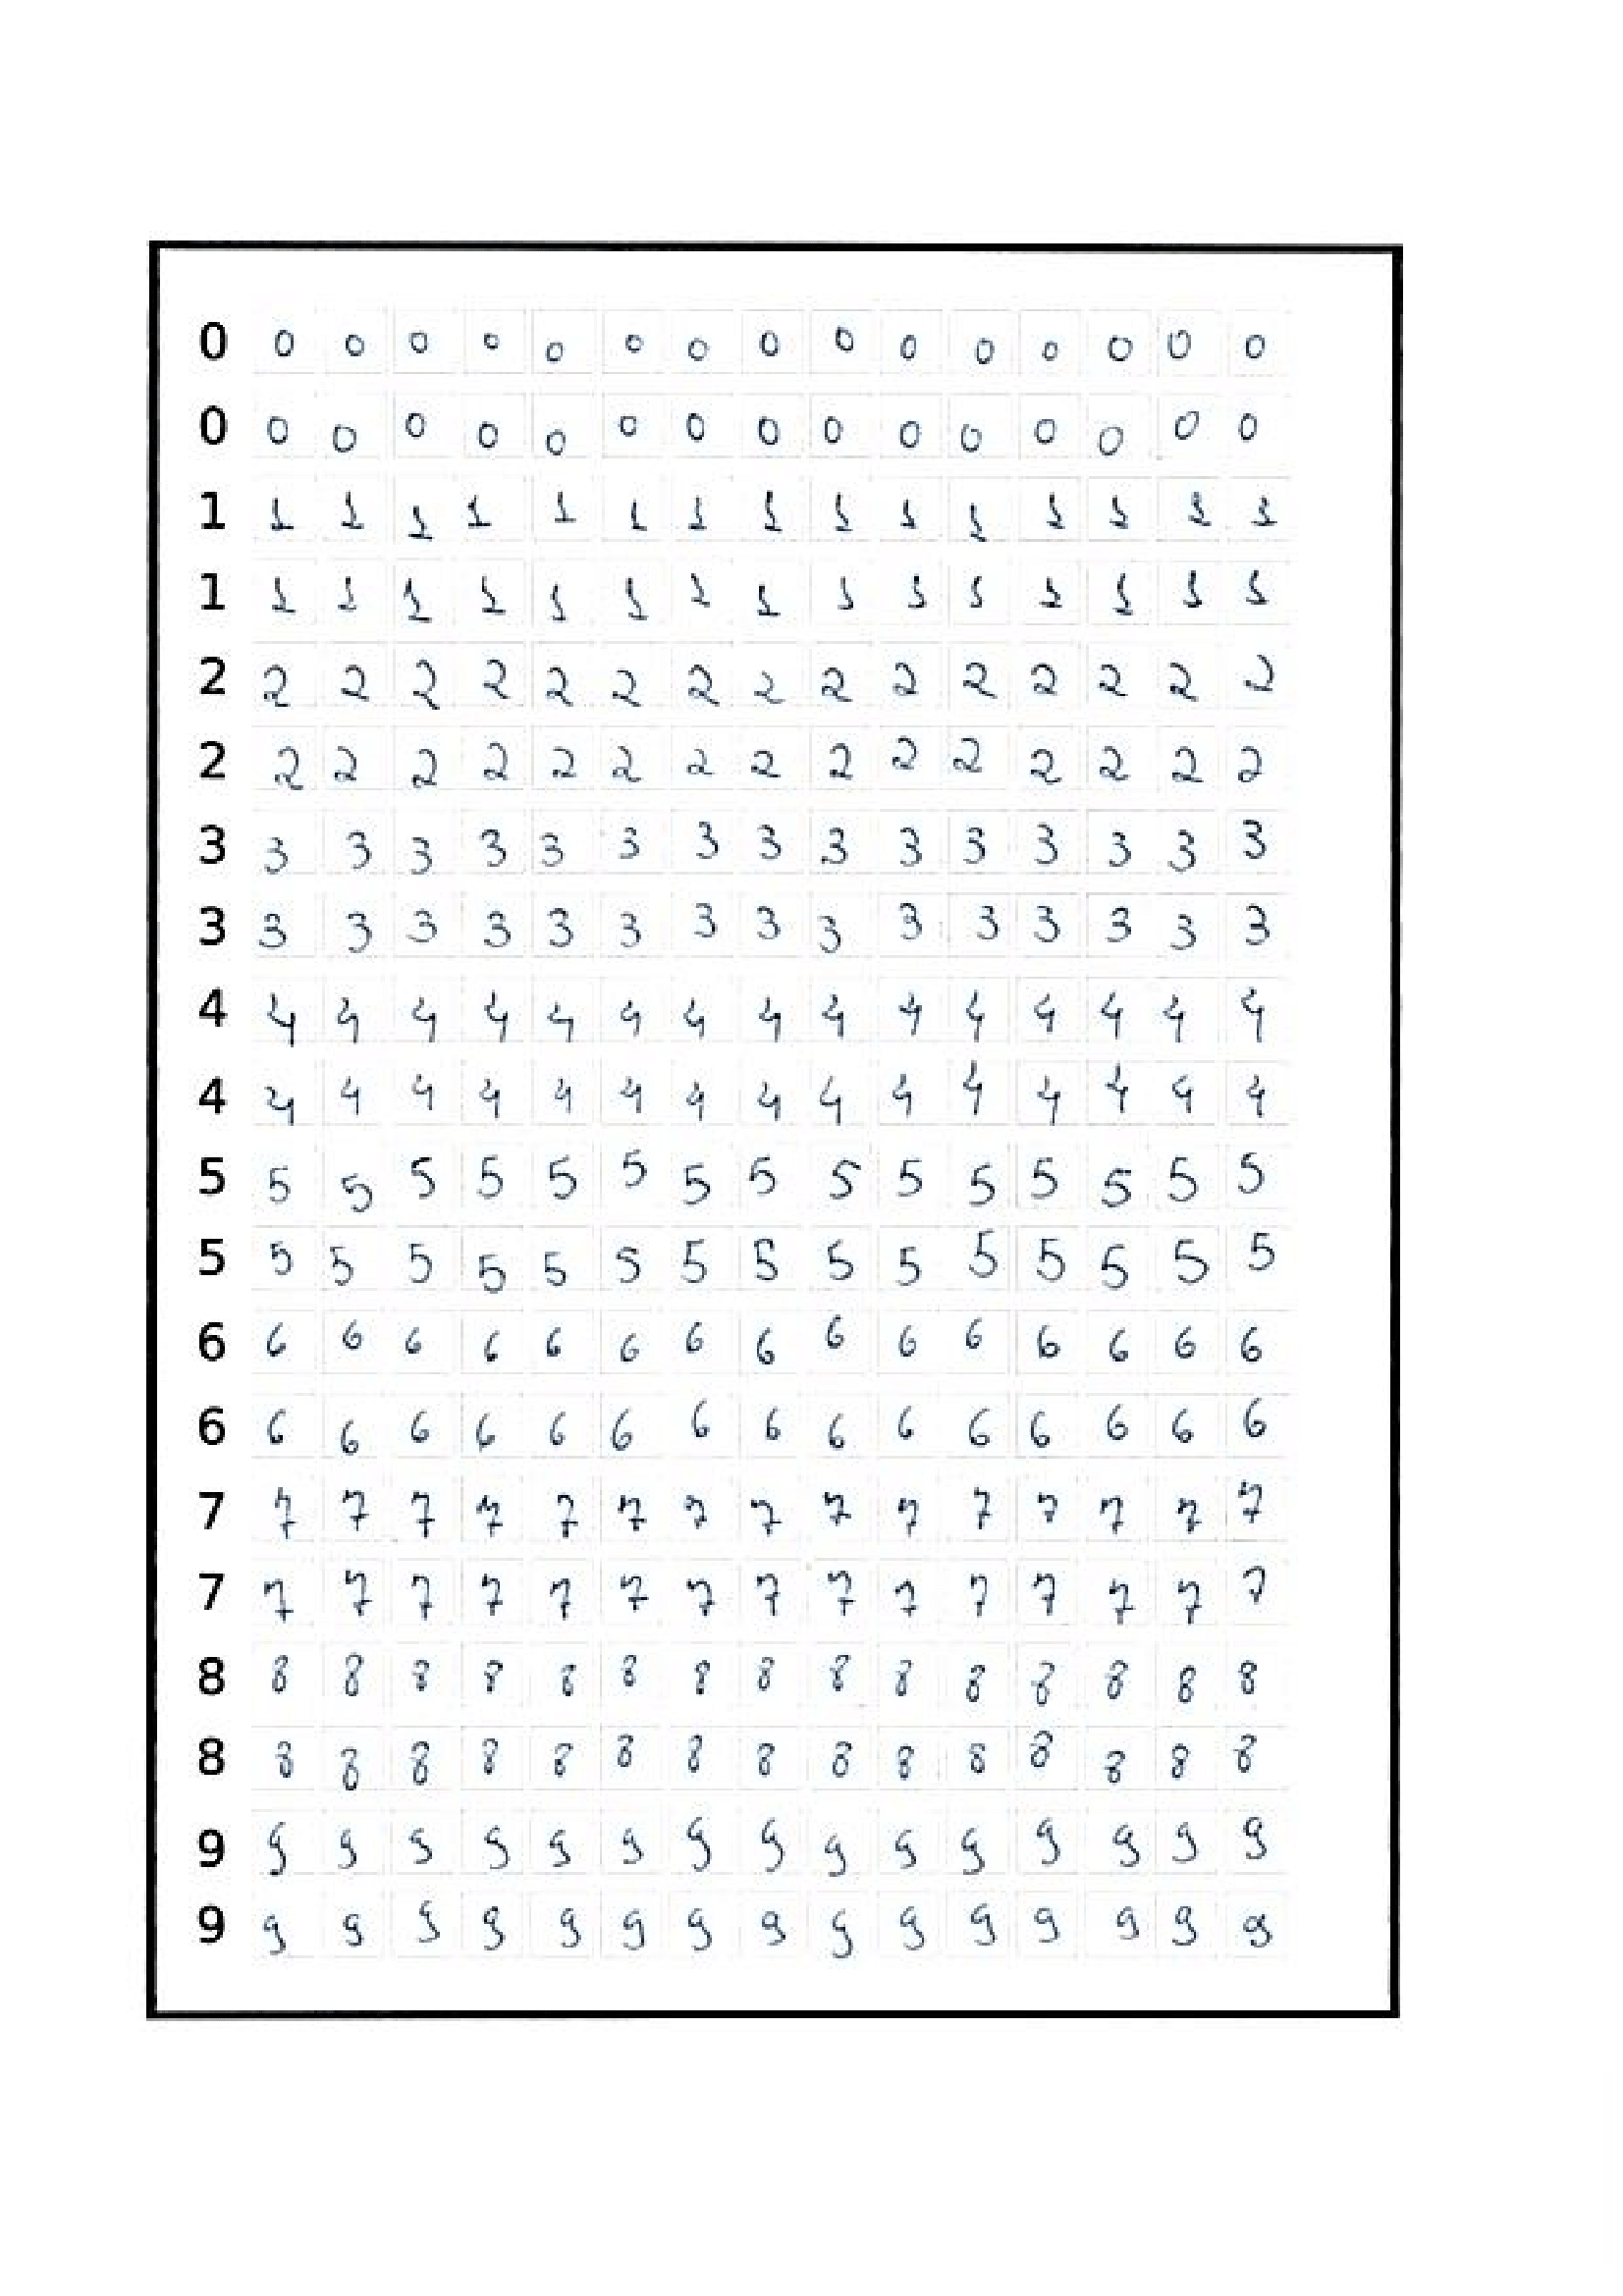 0 0 0 0 0 0 0 0 0 0 0 0 0 0 0 0
0 0 0 0 0 0 0 0 0 0 0 0 0 0 0 0
1 1 1 1 1 1 1 1 1 1 1 1 1 1 1 1
1 1 1 1 1 1 1 1 1 1 1 1 1 1 1 1
2 2 2 2 2 2 2 2 2 2 2 2 2 2 2 2
2 2 2 2 2 2 2 2 2 2 2 2 2 2 2 2
3 3 3 3 3 3 3 3 3 3 3 3 3 3 3 3
3 3 3 3 3 3 3 3 3 3 3 3 3 3 3 3
4 4 4 4 4 4 4 4 4 4 4 4 4 4 4 4
4 4 4 4 4 4 4 4 4 4 4 4 4 4 4 4
5 5 5 5 5 5 5 5 5 5 5 5 5 5 5 5
5 5 5 5 5 5 5 5 5 5 5 5 5 5 5 5
6 6 6 6 6 6 6 6 6 6 6 6 6 6 6 6
6 6 6 6 6 6 6 6 6 6 6 6 6 6 6 6
7 7 7 7 7 7 7 7 7 7 7 7 7 7 7 7
7 7 7 7 7 7 7 7 7 7 7 7 7 7 7 7
8 8 8 8 8 8 8 8 8 8 8 8 8 8 8 8
8 8 8 8 8 8 8 8 8 8 8 8 8 8 8 8
9 9 9 9 9 9 9 9 9 9 9 9 9 9 9 9
9 9 9 9 9 9 9 9 9 9 9 9 9 9 9 9